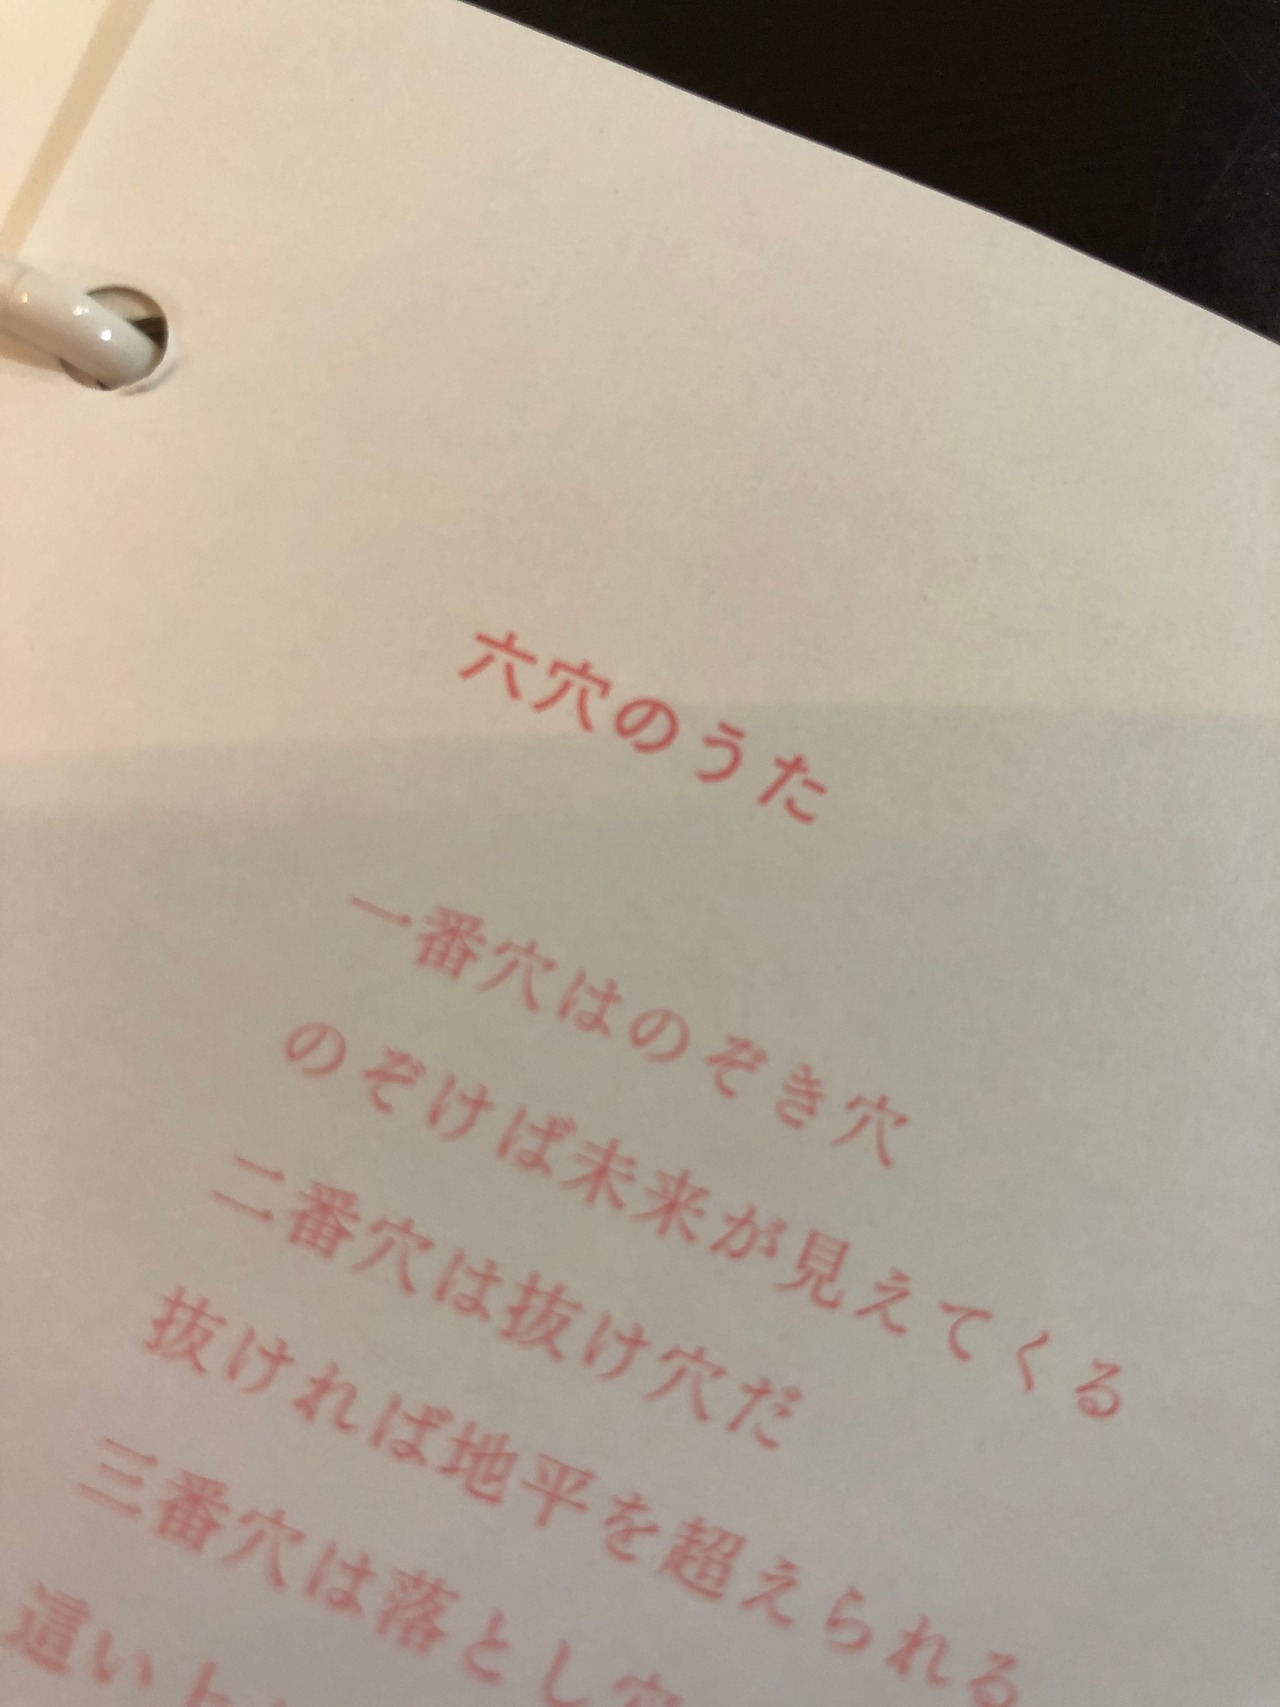 六穴のうた
一番穴はのぞき穴
のぞけば未来が見えてくる
二番穴は抜け穴だ
抜ければ地平を超えられる
三番穴は落とし穴
這い上